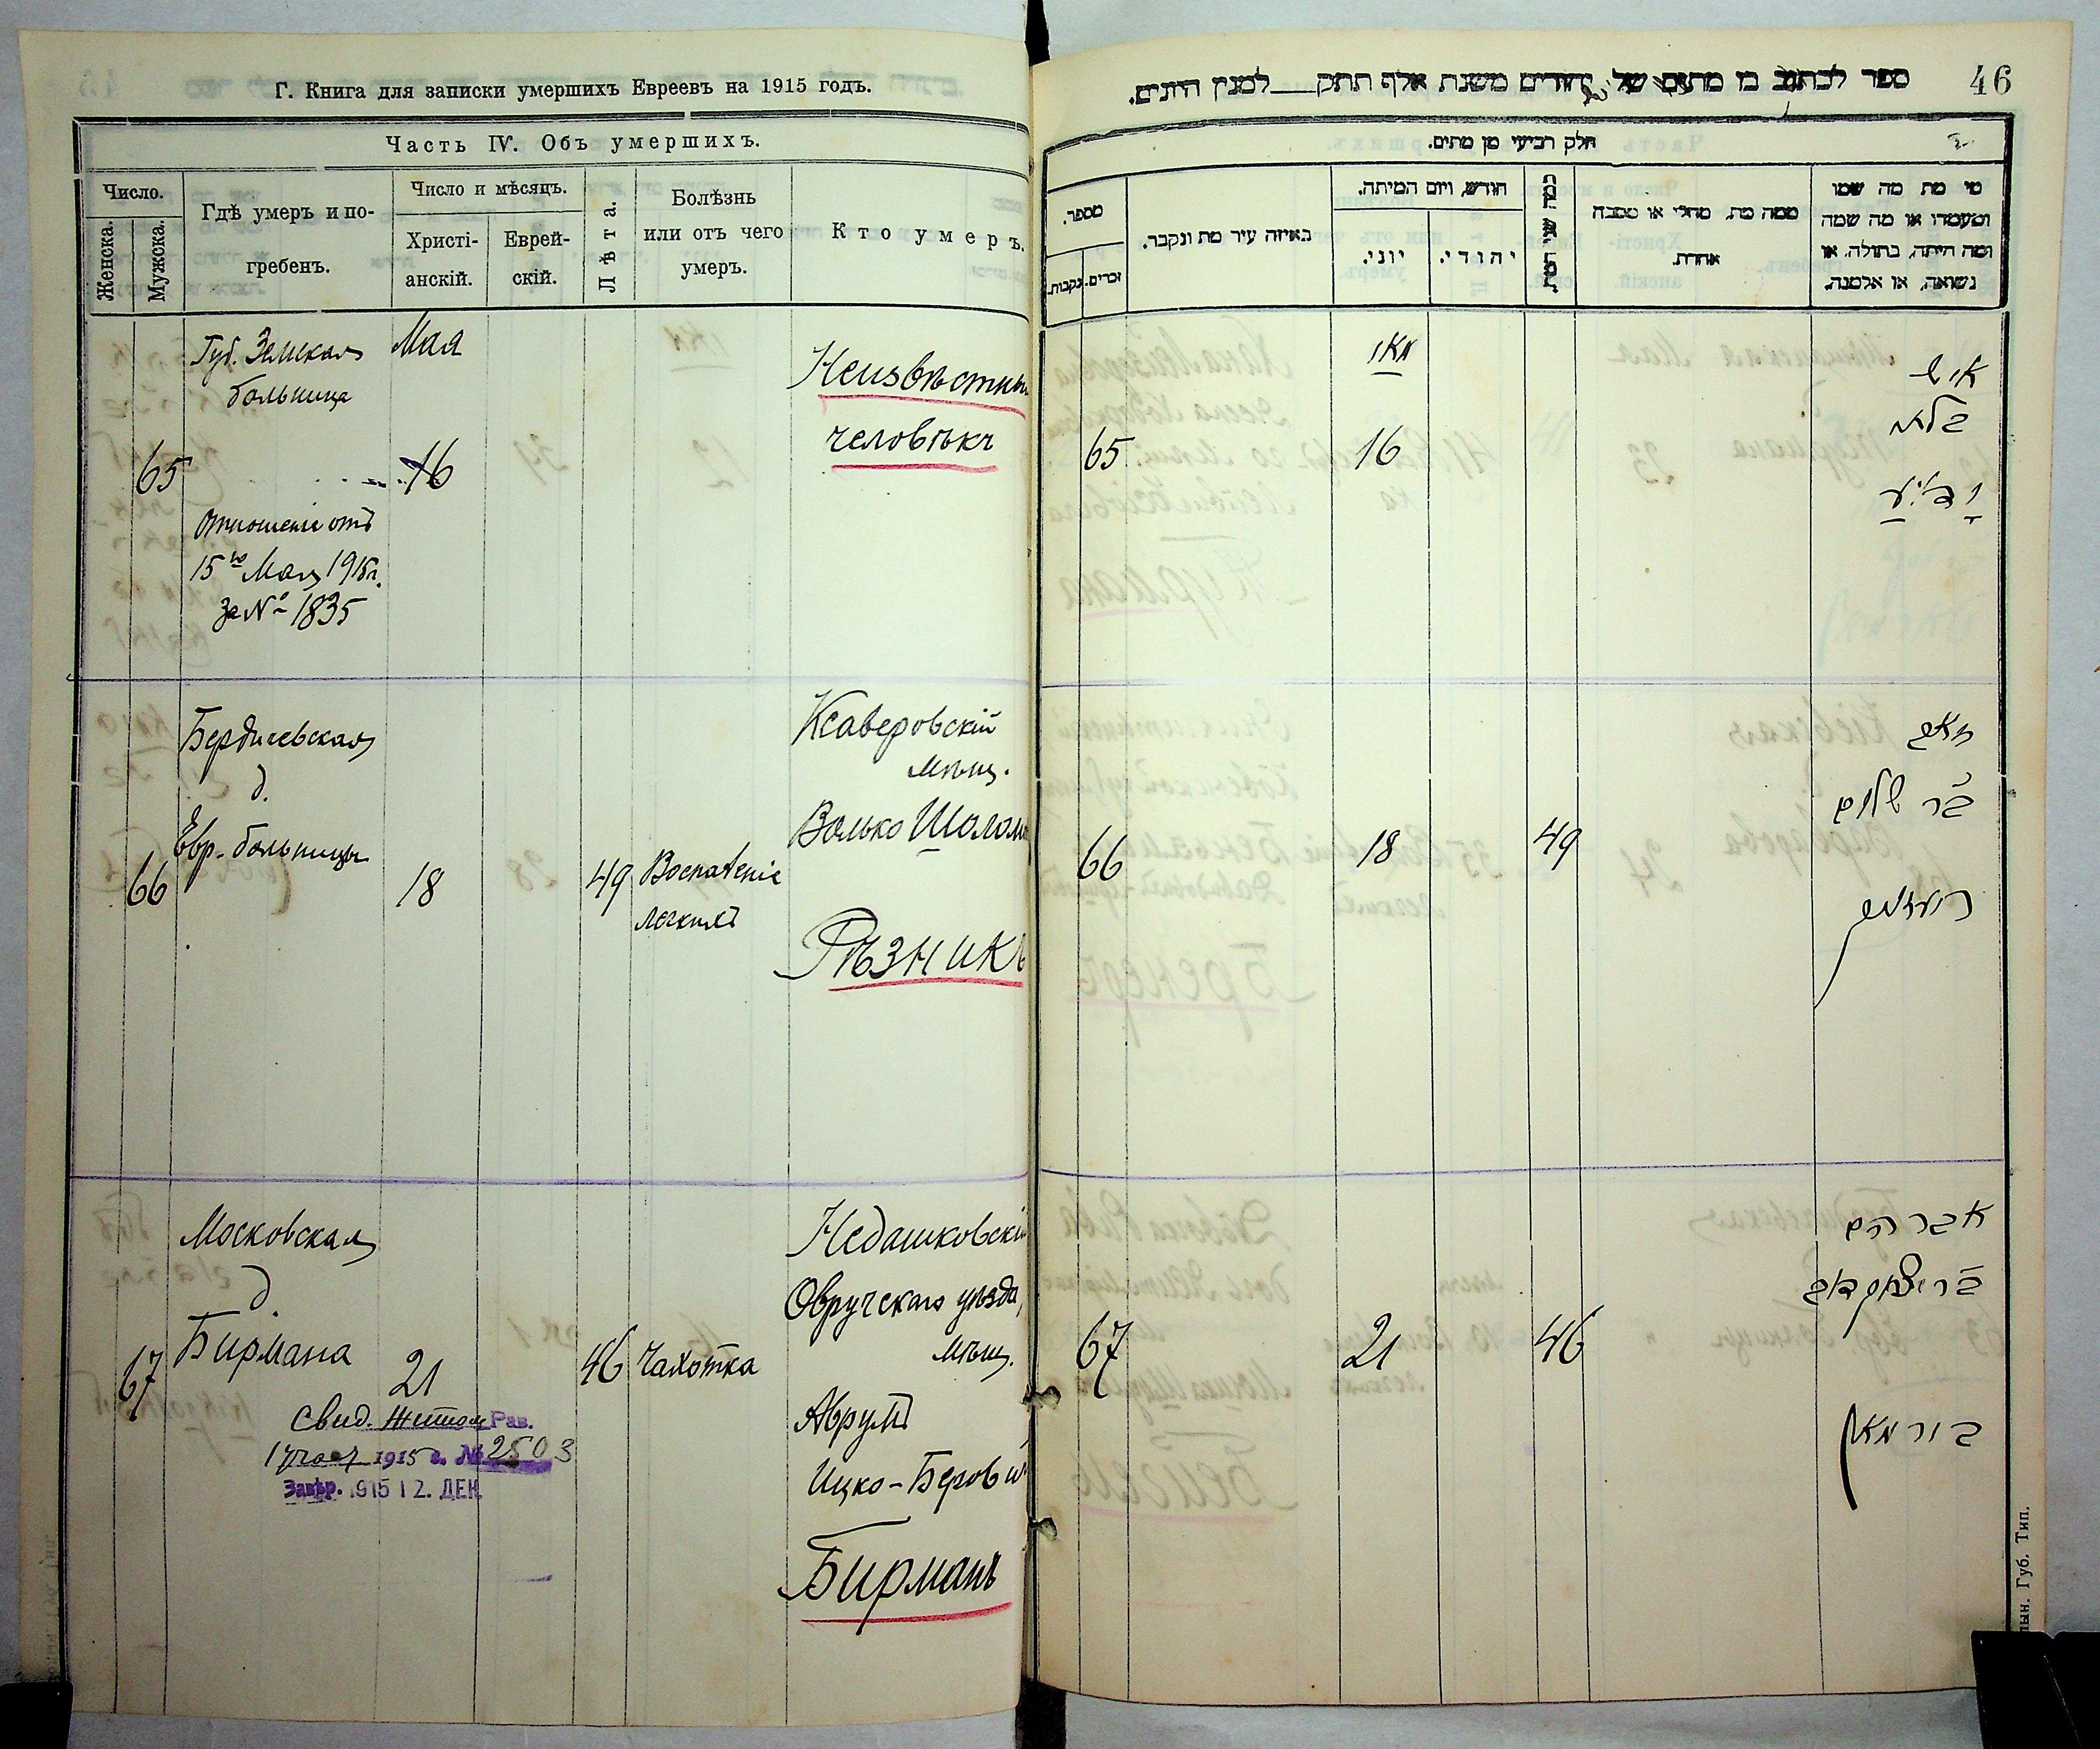 Г. Книга для записки умершихъ Евреевъ на 1915 годъ.
Часть IV. Объ умершихъ.
Число.
Женска.
Мужска.
Гдѣ умеръ и по-
гребенъ.
Число и мѣсяцъ.
Христі-
анскій.
Еврей-
скій.
Лѣта.
Болѣзнь
или отъ чего
умеръ.
Кто умеръ.
Губ. Земская
больница
Мая
65
16
Отношеніе отъ
15го Мая 1915 г.
за № 1835
Неизвѣстный
человѣкъ
Бердичевская
д.
Евр. больницы
66
18
49
Воспаленіе
легкихъ
Ксаверовскій
мѣщ.
Волько Шолом
Рѣзникъ
Московская
д.
Бирмана
67
21
46
Чахотка
Свид. Житом. Рав.
1915 г. № 2503
Завѣр. 1915 12. ДЕК.
Недашковскій
Овручскаго уѣзда,
мѣщ.
Аврумъ
Ицко-Беров
Бирманъ
46
ספר לכתוב בו מתים של יהודים משנת אלף תתק למנין היונים.
חלק רביעי מן מתים.
מספר.
זכרים.
נקבות.
באיזה עיר מת ונקבר.
חודש, ויום המיתה.
יוני.
יהודי.
ממה מת, מחלי או מסבה
אחרת.
מי מת מה שמו
ומעמדו או מה שמה
ומה היתה, בתולה, או
נשואה, או אלמנה.
מאי
65
16
איש
בלתי
ידוע
66
18
49
בר שלום
רעזניק
67
21
46
אברהם
בר יצחק דוב
בירמאן
Губ. Тип.